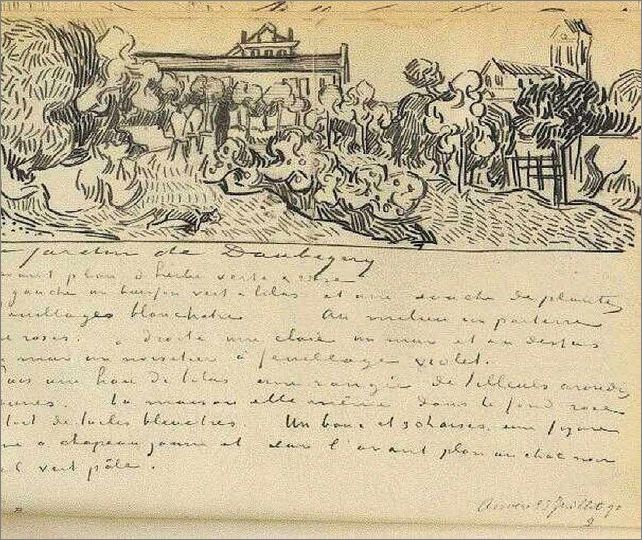 jardin de Daubigny
avant plan d'herbe verte & rose
gauche un buisson vert & lilas et une souche de plantes
feuillages blanchatres Au milieu un parterre
e roses. à droite une claie un mur et au dessus
u mur un noisetier à feuillage violet.
uis une haie de lilas une rangée de tilleuls arondis
aunes. la maison elle même dans le fond rose
toit de tuiles bleuatres. Un banc et 3 chaises, une figure
re à chapeau jaune et sur l'avant plan un chat noir
el vert pâle.
Juillet 90